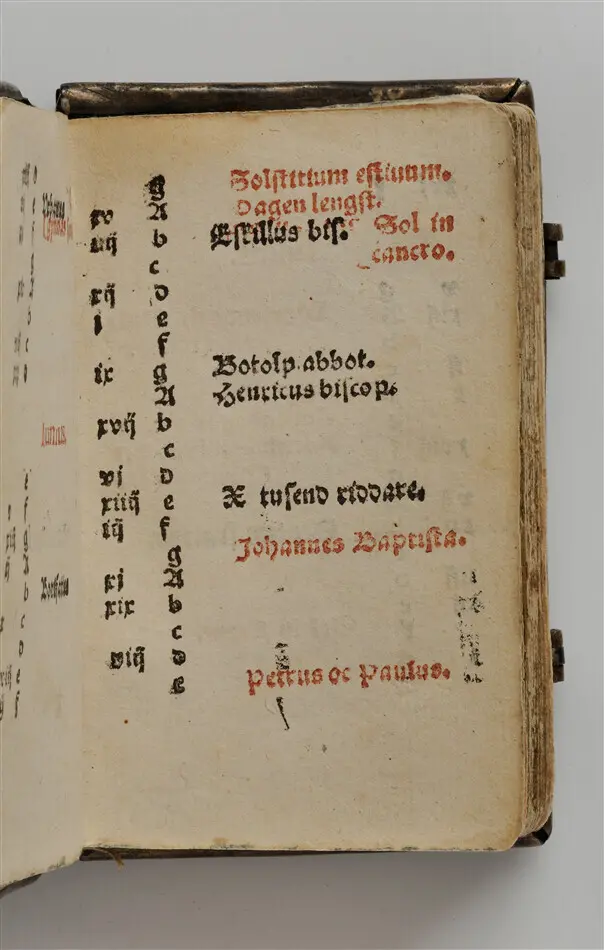 g Solstitium estiuum.
Dagen lengst.
xv A
iiij b Eskillus bis. Sol in
cancro.
c
xij d
i e
f
ix g Botolp abbot.
A Henricus biscop.
xvij b
c
vj d
xiiij e X tusend riddare.
iij f
g Johannes Baptista.
xj A
xix b
c
viij d
e Petrus oc Paulus.